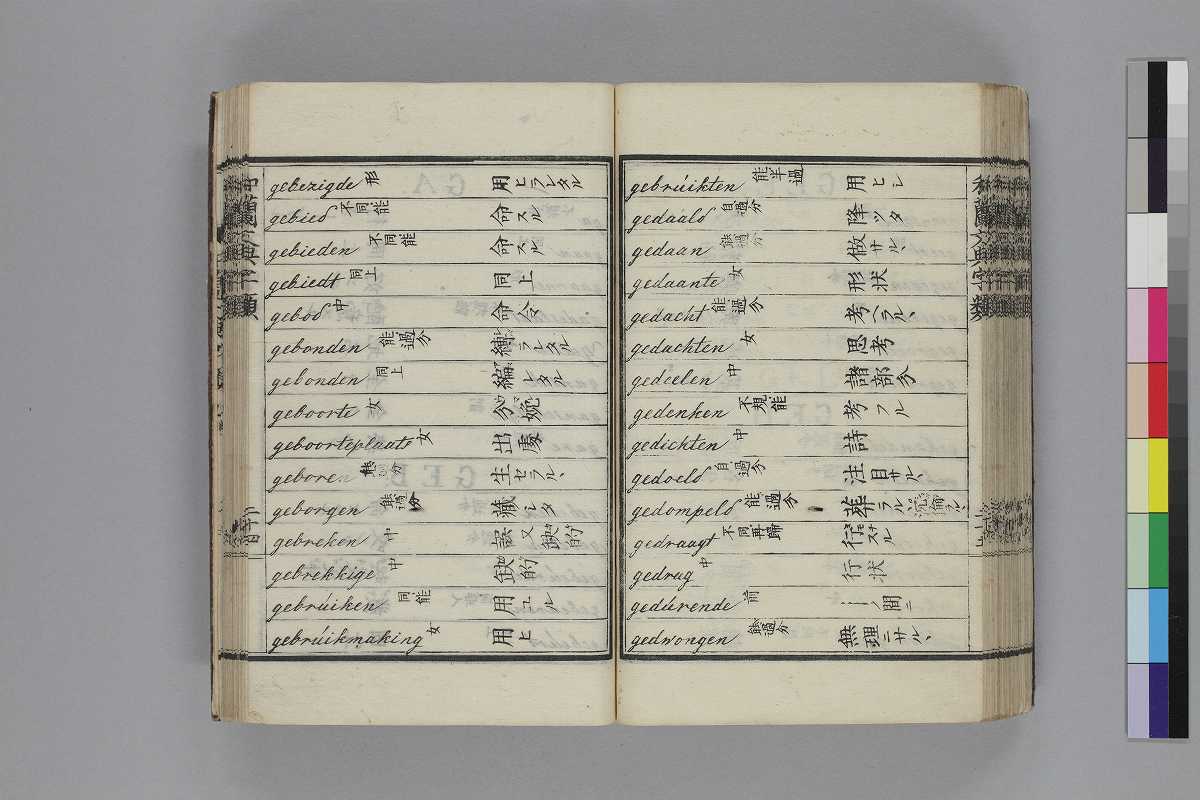 gebezigde 形 用ヒラレタル
gebied 不同能 命スル
gebieden 不同能 命スル
gebiedt 同上 同上
gebod 中 命令
gebonden 能過分 縛ラレタル
gebonden 同上 編レタル
geboorte 女 分娩
geboorteplaats 女 出處
geboren 能過分 生セラル、
geborgen 能過分 藏シタ
gebreken 中 誤又缺的
gebrekkige 中 缺的
gebrúiken 同能 用ユル
gebrúikmaking 女 用ヒ
gebrúikten 能半過 用ヒシ
gedaald 自過分 降ツタ
gedaan 能過分 做サル、
gedaante 女 形状
gedacht 能過分 考ヘラル、
gedachten 女 思考
gedeelen 中 諸部分
gedenken 不規能 考フル
gedichten 中 詩
gedoeld 自過分 注目サル、
gedompeld 能過分 葬ラル、
gedraagt 不同再歸 行
gedrag 中 行状
gedúrende 前 ノ間ニ
gedwongen 能過分 無理ニサル、